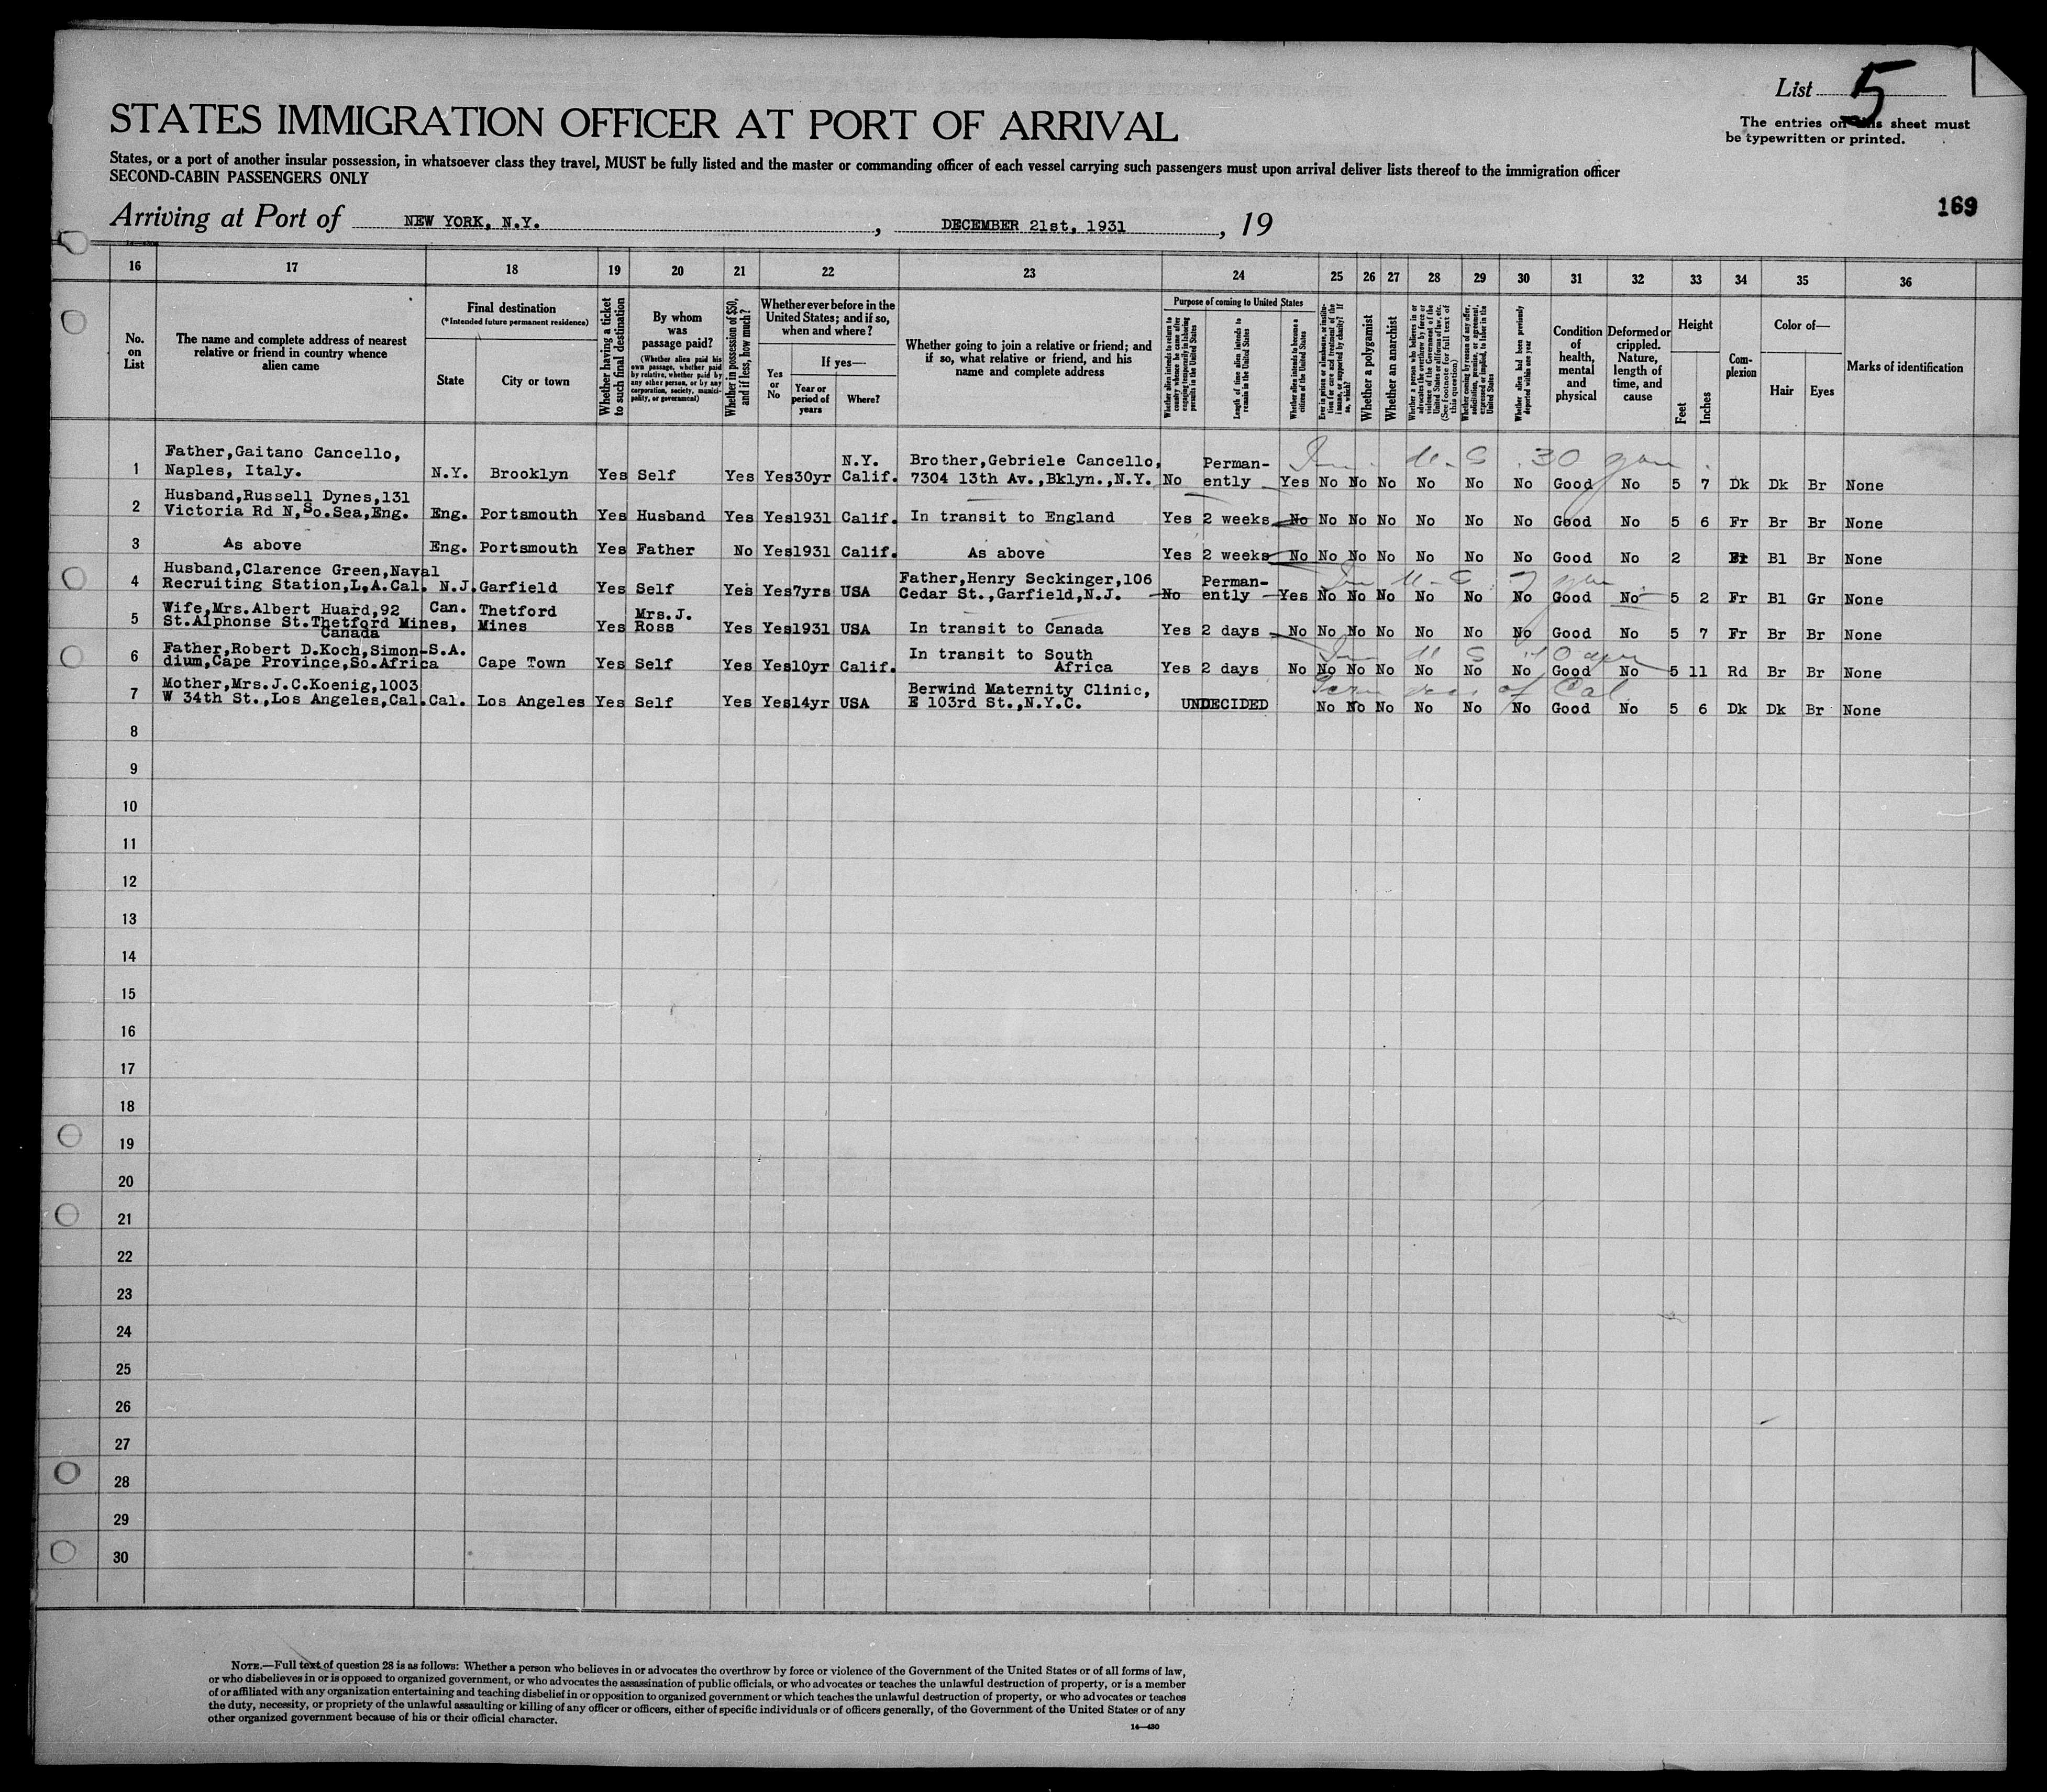 List 5
STATES IMMIGRATION OFFICER AT PORT OF ARRIVAL
The entries on this sheet must
be typewritten or printed.
States, or a port of another insular possession, in whatsoever class they travel, MUST be fully listed and the master or commanding officer of each vessel carrying such passengers must upon arrival deliver lists thereof to the immigration officer
SECOND-CABIN PASSENGERS ONLY
169
Arriving at Port of NEW YORK, N.Y. , DECEMBER 21st, 1931 , 19
16 17 18 19 20 21 22 23 24 25 26 27 28 29 30 31 32 33 34 35 36
No. on List
The name and complete address of nearest
relative or friend in country whence
alien came
Final destination
(*Intended future permanent residence)
State
City or town
Whether having a ticket
to such final destination
By whom
was
passage paid?
(Whether alien paid his
own passage, whether paid
by relative, whether paid by
any other person, or by any
corporation, society, munici-
pality, or government)
Whether in possession of $50,
and if less, how much?
Whether ever before in the
United States; and if so,
when and where?
Yes or No
If yes—
Year or
period of
years
Where?
Whether going to join a relative or friend; and
if so, what relative or friend, and his
name and complete address
Purpose of coming to United States
Whether alien intends to return to
country whence he came after
engaging temporarily in laboring
pursuits in the United States
Length of time alien intends to
remain in the United States
Whether alien intends to become a
citizen of the United States
Ever in prison or almshouse, or institu-
tion for care and treatment of the
insane, or supported by charity? If
so, which?
Whether a polygamist
Whether an anarchist
Whether a person who believes in or
advocates the overthrow by force or
violence of the Government of the
United States or all forms of law, etc.
(See footnote for full text of
this question)
Whether coming by reason of any offer,
solicitation, promise, or agreement,
expressed or implied, to labor in the
United States
Whether alien had been previously
deported within one year
Condition
of
health,
mental
and
physical
Deformed or
crippled.
Nature,
length of
time, and
cause
Height
Feet
Inches
Com-
plexion
Color of—
Hair
Eyes
Marks of identification
In U.S. 30 years
1 Father,Gaitano Cancello,
Naples, Italy. N.Y. Brooklyn Yes Self Yes Yes 30yr N.Y. Calif. Brother,Gebriele Cancello,
7304 13th Av.,Bklyn.,N.Y. No Perman-
ently Yes No No No No No No Good No 5 7 Dk Dk Br None
2 Husband,Russell Dynes,131
Victoria Rd N,So.Sea,Eng. Eng. Portsmouth Yes Husband Yes Yes 1931 Calif. In transit to England Yes 2 weeks No No No No No No No Good No 5 6 Fr Br Br None
3 As above Eng. Portsmouth Yes Father No Yes 1931 Calif. As above Yes 2 weeks No No No No No No No Good No 2 Bl Br None
In U.S. 7 years
4 Husband,Clarence Green,Naval
Recruiting Station,L,A.Cal. N.J. Garfield Yes Self Yes Yes 7yrs USA Father,Henry Seckinger,106
Cedar St.,Garfield,N.J. No Perman-
ently Yes No No No No No No Good No 5 2 Fr Bl Gr None
5 Wife,Mrs.Albert Huard,92
St.Alphonse St.Thetford Mines,
Canada Can. Thetford
Mines Yes Mrs.J.
Ross Yes Yes 1931 USA In transit to Canada Yes 2 days No No No No No No No Good No 5 7 Fr Br Br None
In U S 10 years
6 Father,Robert D.Koch,Simon-
dium,Cape Province,So.Africa S.A. Cape Town Yes Self Yes Yes 10yr Calif. In transit to South
Africa Yes 2 days No No No No No No No Good No 5 11 Rd Br Br None
of Cal
7 Mother,Mrs.J.C.Koenig,1003
W 34th St.,Los Angeles,Cal. Cal. Los Angeles Yes Self Yes Yes 14yr USA Berwind Maternity Clinic,
E 103rd St.,N.Y.C. UNDECIDED No No No No No No Good No 5 6 Dk Dk Br None
8
9
10
11
12
13
14
15
16
17
18
19
20
21
22
23
24
25
26
27
28
29
30
NOTE.—Full text of question 28 is as follows: Whether a person who believes in or advocates the overthrow by force or violence of the Government of the United States or of all forms of law,
or who disbelieves in or is opposed to organized government, or who advocates the assassination of public officials, or who advocates or teaches the unlawful destruction of property, or is a member
of or affiliated with any organization entertaining and teaching disbelief in or opposition to organized government or which teaches the unlawful destruction of property, or who advocates or teaches
the duty, necessity, or propriety of the unlawful assaulting or killing of any officer or officers, either of specific individuals or of officers generally, of the Government of the United States or of any
other organized government because of his or their official character.
14—430